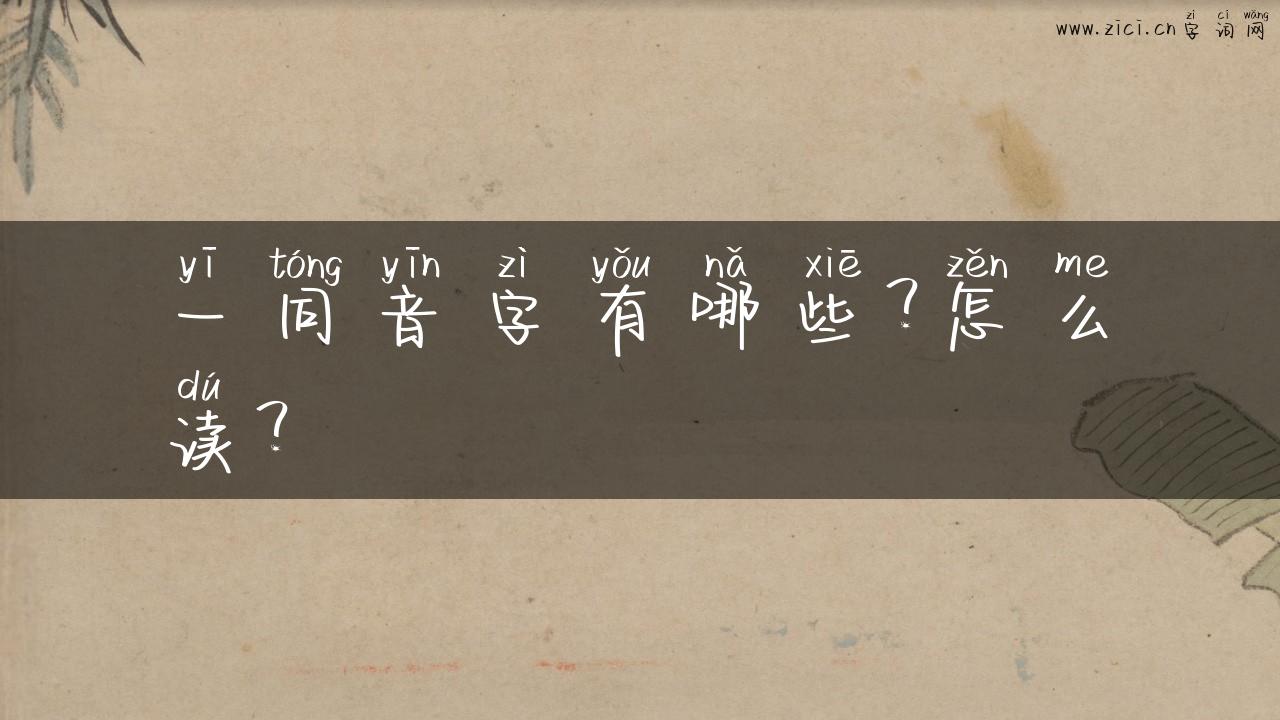 zì cí wǎng
www.zici.cn 字词网
yī tóng yīn zì yǒu nǎ xiē zěn me
一同音字有哪些？怎么
dú
读？